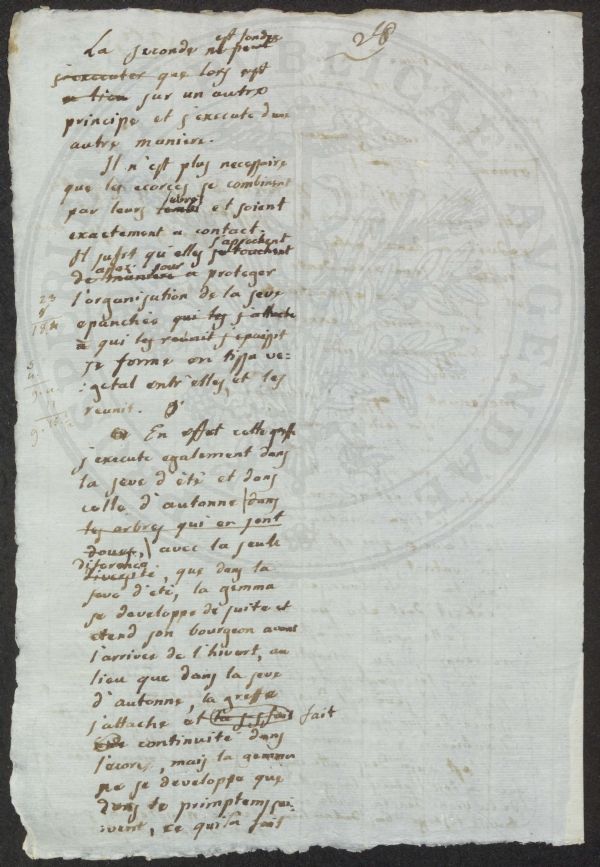 28
La seconde ne peut est fondée
s'executer que lors est
a lieu sur un autre
principe et s'execute d'une
autre maniere.
Il n'est plus necessaire
que les ecorces se combinent
par leurs et soient
exactement a contact.
Il sufit qu'elles se touchent s'aprochent
de maniere assez pour a proteger
l'organisation de la seve
epanchée qui les s'attache
a qui les reunit s'epaissit
se forme en tissu ve-
getal entr'elles, et les
reunit.
En effet cette greffe
s'execute egalement dans
la seve d'été et dans
celle d'autonne dans
les arbres qui en sont
doués, avec la seule
diference
diversité, que dans la
seve d'été, la gemma
se developpe de suite et
etend son bourgeon avant
l'arrivée de l'hivert, au
lieu que dans la seve
d'autonne, la greffe
s'attache et fait
continuité dans
l'ecorce, mais la gemma
ne se developpe que
dans le primptems sui-
vant, ce qui la fait
23
8